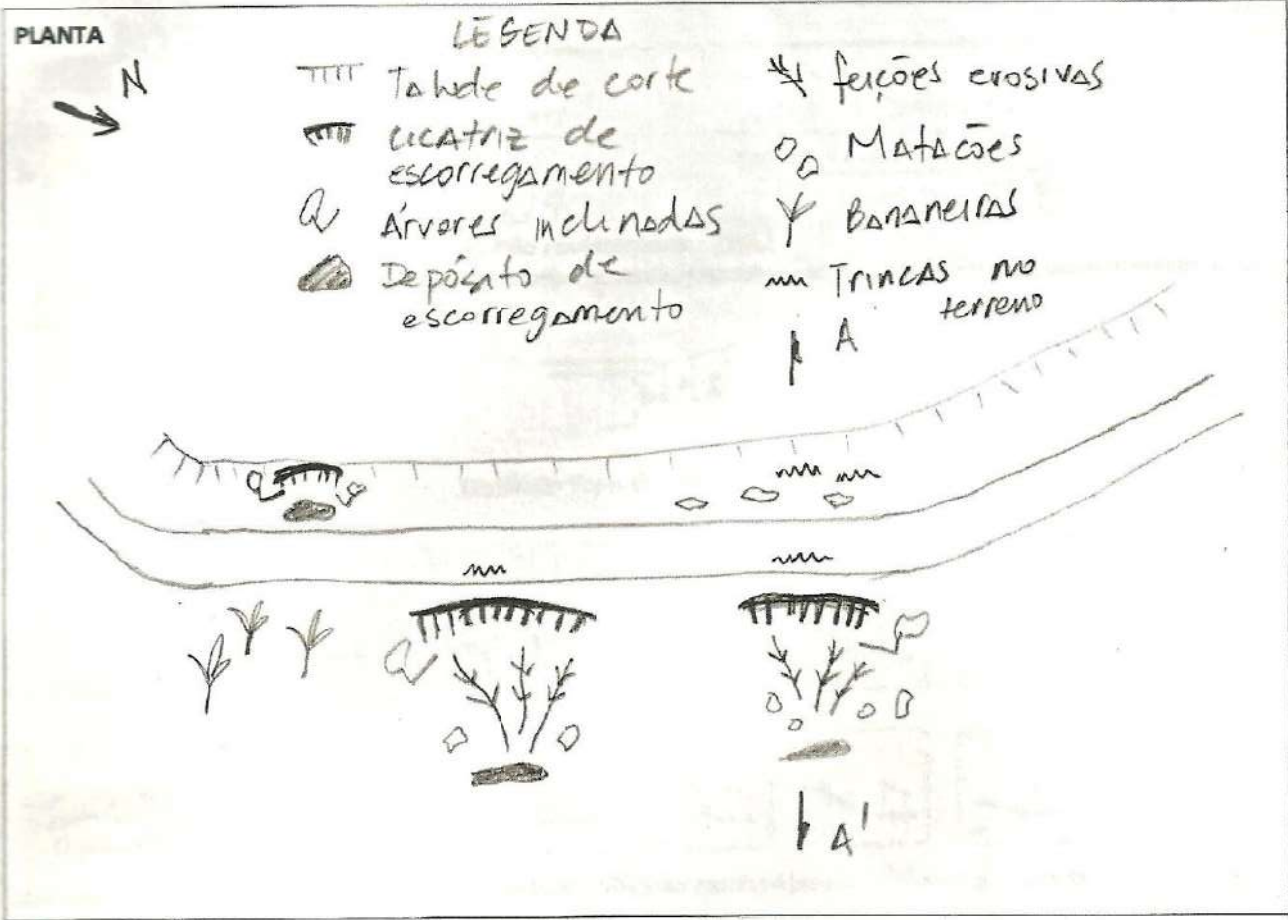 PLANTA
N
LEGENDA
Talude de corte
cicatriz de
escorregamento
Árvores inclinadas
Depósito de
escorregamento
feições erosivas
Matacões
Bananeiras
Trincas no
terreno
A
A'